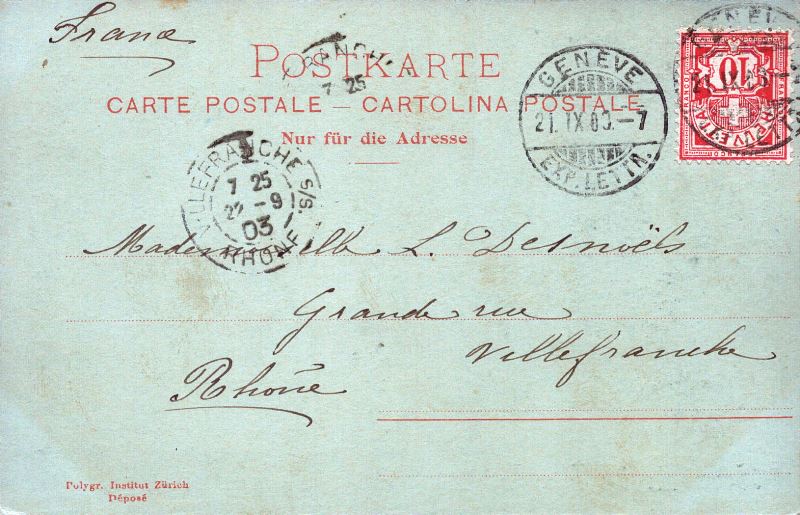 France
POSTKARTE
CARTE POSTALE — CARTOLINA POSTALE
Nur für die Adresse
7 25
GENÈVE
21. IX 03. – 7
EXP. LETTR.
10
VILLEFRANCHE S/S.
7 25
22 - 9
03
RHONE
Mademoiselle L. Desnoëls
Grande rue
Villefranche
Rhône
Polygr. Institut Zürich
Déposé